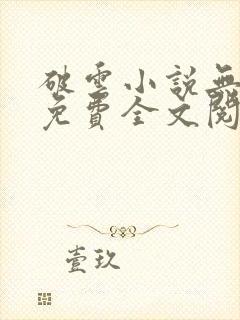 破雲小說無
免費全文閱
壹玖